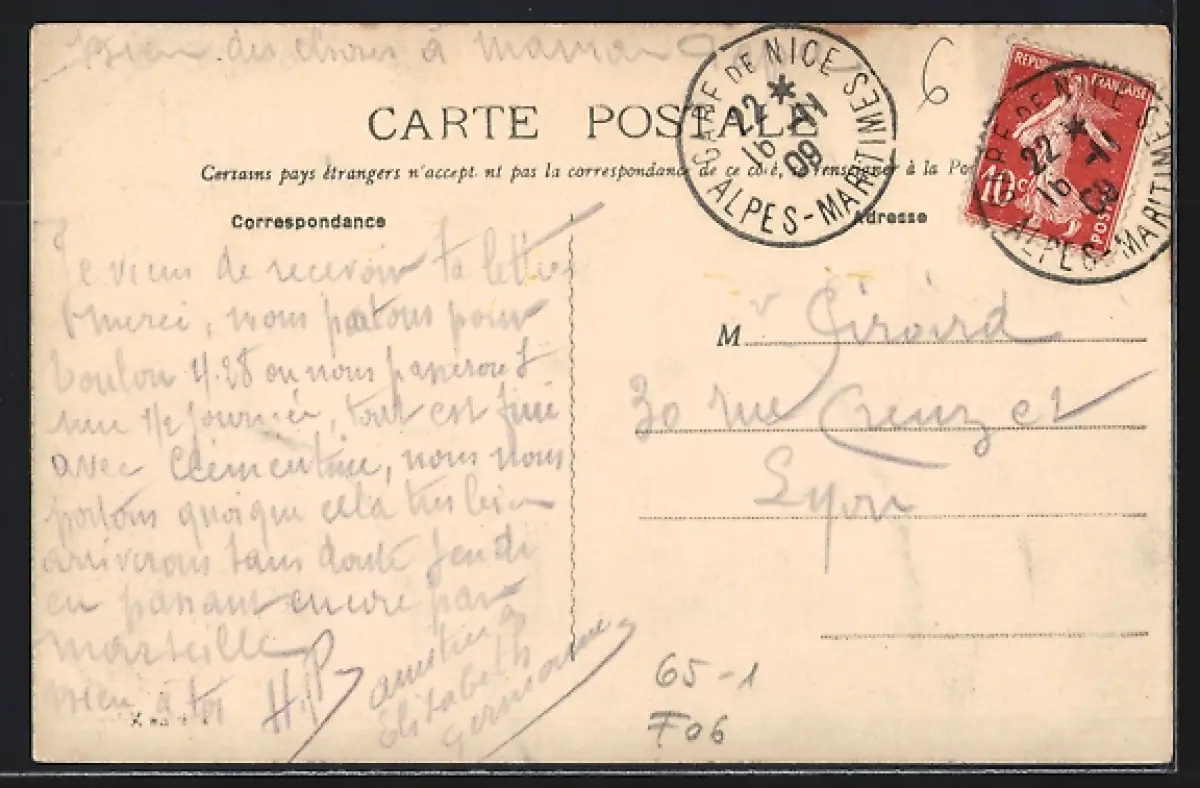 Bien des choses à maman
CARTE POSTALE
Certains pays étrangers n'accept. nt pas la correspondance de ce côté, se renseigner à la Po
Correspondance
Adresse
GARE DE NICE
22 * 16 -11 09
ALPES-MARITIMES
6
REPUBLIQUE FRANÇAISE
10 c.
POSTES
GARE DE NICE
22 * 16 -11 09
ALPES-MARITIMES
Je viens de recevoir ta lettre
merci, nous partons pour
Toulon 4.28 où nous passerons
une 1/2 journée, tout est fini
avec Clémentine, nous nous
portons quoique cela très bien
arriverons sans doute Jeudi
en passant encore par
Marseille
Bien à toi
amitiés
Elisabeth
Germaine
M r Girard
30 rue Creuzet
Lyon
65-1
F06